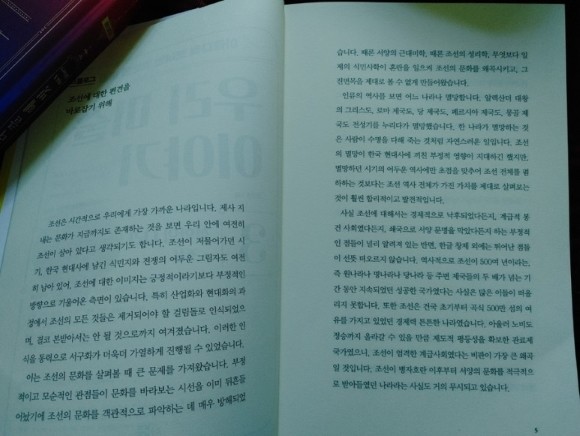 프롤로그
조선에 대한 편견을
바로잡기 위해
조선은 시간적으로 우리에게 가장 가까운 나라입니다. 제사 지
내는 문화가 지금까지도 존재하는 것을 보면 우리 안에 여전히
조선이 살아 있다고 생각되기도 합니다. 조선이 저물어가던 시
기, 한국 현대사에 남긴 식민지와 전쟁의 어두운 그림자도 여전
히 남아 있어, 조선에 대한 이미지는 긍정적이라기보다 부정적인
방향으로 기울어온 측면이 있습니다. 특히 산업화와 현대화의 과
정에서 조선의 모든 것들은 제거되어야 할 걸림돌로 인식되었으
며, 결코 본받아서는 안 될 것으로까지 여겨졌습니다. 이러한 인
식을 동력으로 서구화가 더욱더 가열하게 진행될 수 있었습니다.
이는 조선의 문화를 살펴볼 때 큰 문제를 가져왔습니다. 부정
적이고 모순적인 관점들이 문화를 바라보는 시선을 이미 뒤흔들
어놓았기에 조선의 문화를 객관적으로 파악하는 데 매우 방해되었
습니다. 때론 서양의 근대미학, 때론 조선의 성리학, 무엇보다 일
제의 식민사학이 혼란을 일으켜 조선의 문화를 왜곡시키고, 그
진면목을 제대로 볼 수 없게 만들어왔습니다.
인류의 역사를 보면 어느 나라나 멸망합니다. 알렉산더 대왕
의 그리스도, 로마 제국도, 당 제국도, 페르시아 제국도, 몽골 제
국도 전성기를 누리다가 멸망했습니다. 한 나라가 멸망하는 것
은 사람이 수명을 다해 죽는 것처럼 자연스러운 일입니다. 조선
의 멸망이 한국 현대사에 끼친 부정적 영향이 지대하긴 했지만,
멸망하던 시기의 어두운 역사에만 초점을 맞추어 조선 전체를 폄
하하는 것보다는 조선 역사 전체가 가진 가치를 제대로 살펴보는
것이 훨씬 합리적이고 발전적입니다.
사실 조선에 대해서는 경제적으로 낙후되었다든지, 계급적 봉
건 사회였다든지, 쇄국으로 서양 문명을 막았다든지 하는 부정적
인 점들이 널리 알려져 있는 반면, 한글 창제 외에는 뛰어난 점들
이 선뜻 떠오르지 않습니다. 역사적으로 조선이 500여 년이라는,
즉 원나라나 명나라나 당나라 등 주변 제국들의 두 배가 넘는 기
간 동안 지속되었던 성공한 국가였다는 사실은 많은 이들이 떠올
리지 못합니다. 또한 조선은 건국 초기부터 곡식 500만 섬의 여
유를 가지고 있었던 경제력 튼튼한 나라였습니다. 아울러 노비도
정승까지 올라갈 수 있을 만큼 제도적 평등성을 확보한 관료제
국가였으니, 조선이 엄격한 계급사회였다는 비판이 가장 큰 왜곡
일 것입니다. 조선이 병자호란 이후부터 서양의 문화를 적극적으
로 받아들였던 나라라는 사실도 거의 무시되고 있습니다.
5